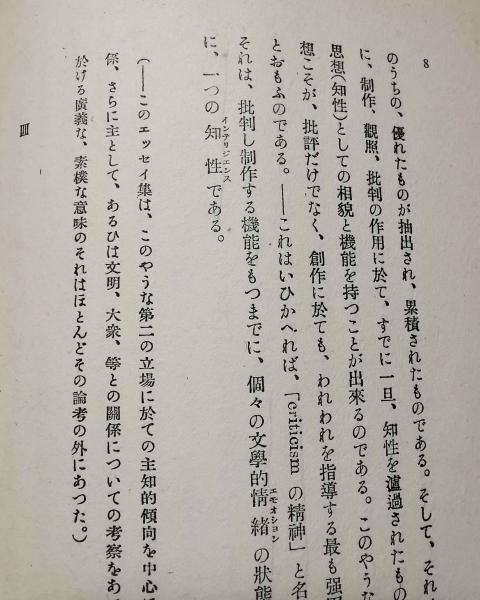 8
のうちの、優れたものが抽出され、累積されたものである。そして、それ
に、制作、觀照、批判の作用に於て、すでに一旦、知性を濾過されたもの
思想(知性)としての相貌と機能を持つことが出來るのである。このやうな
想こそが、批評だけでなく、創作に於ても、われわれを指導する最も强
とおもふのである。——これはいひかへれば、「criticism の精神」と名
それは、批判し制作する機能をもつまでに、個々の文學的情緖エモオションの狀態
に、一つの知性インテリジエンスである。
(——このエッセイ集は、このやうな第二の立場に於ての主知的傾向を中心
係、さらに主として、あるひは文明、大衆、等との關係についての考察をあ
於ける廣義な、素樸な意味のそれはほとんどその論考の外にあつた。)
Ⅲ